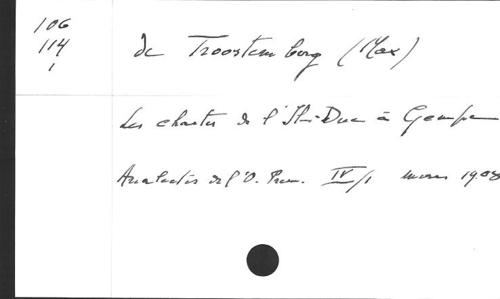 106
114
1
de Troostemberg (Max)
Les chartes de l'Ile-Duc à Gempe
Analectes de l'O. Prem. IV/1 mars 1908